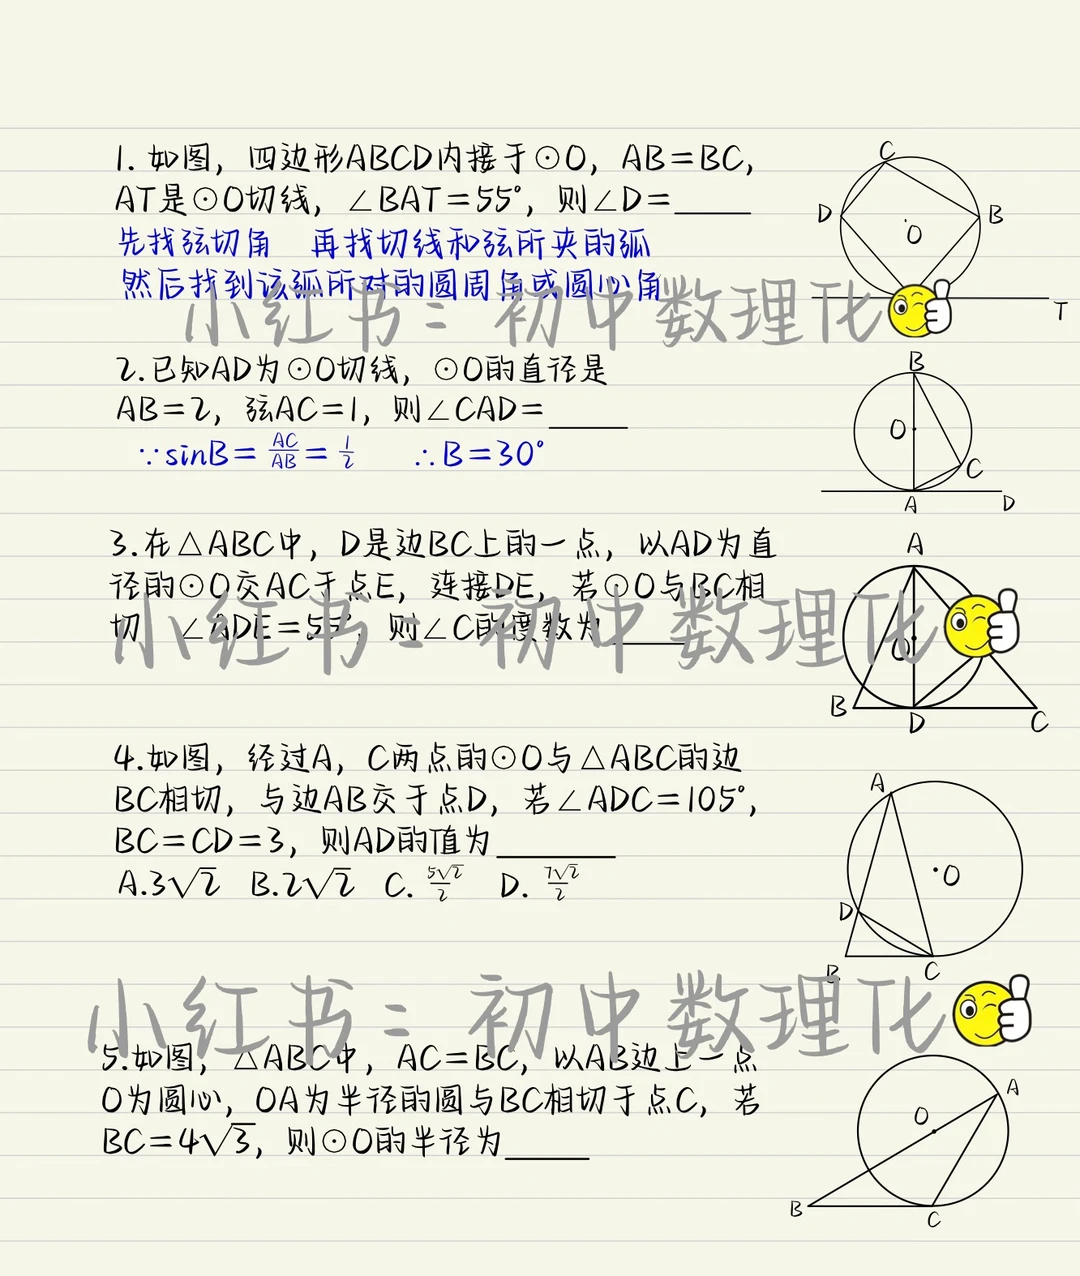 1. 如图，四边形ABCD内接于⊙O，AB=BC，
AT是⊙O切线，∠BAT=55°，则∠D=____
先找弦切角 再找切线和弦所夹的弧
然后找到该弧所对的圆周角或圆心角
C
D
B
O
T
小红书：初中数理化
2.已知AD为⊙O切线，⊙O的直径是
AB=2，弦AC=1，则∠CAD=____
∵sinB=AC/AB=1/2 ∴B=30°
B
O
C
A
D
3.在△ABC中，D是边BC上的一点，以AD为直
径的⊙O交AC于点E，连接DE，若⊙O与BC相
切，∠ADE=55°，则∠C的度数为____
小红书：初中数理化
A
O
B
D
C
4.如图，经过A，C两点的⊙O与△ABC的边
BC相切，与边AB交于点D，若∠ADC=105°，
BC=CD=3，则AD的值为____
A.3√2 B.2√2 C. 5√2/2 D. 7√2/2
A
O
D
B
C
小红书：初中数理化
5.如图，△ABC中，AC=BC，以AB边上一点
O为圆心，OA为半径的圆与BC相切于点C，若
BC=4√3，则⊙O的半径为____
A
O
B
C